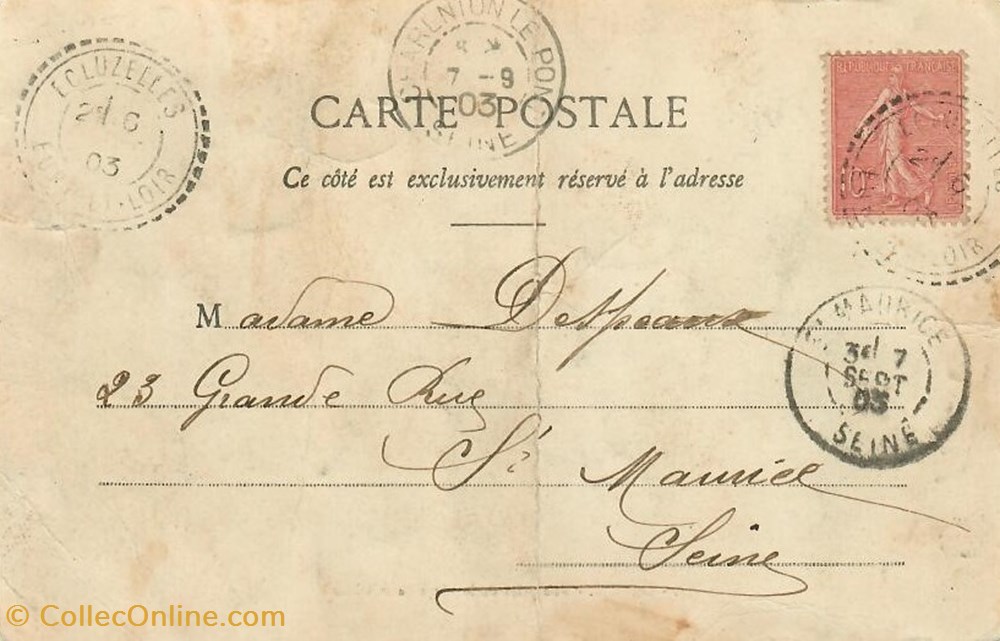 ECLUZELLES
2E 6
03
EURE-ET-LOIR
CHARENTON LE PONT
7 - 9
03
SEINE
REPUBLIQUE FRANÇAISE
10
LOIR
CARTE POSTALE
Ce côté est exclusivement réservé à l'adresse
Madame Despeaux
23 Grande Rue
St Maurice
Seine
ST MAURICE
3E 7
SEPT
03
SEINE
© CollecOnline.com